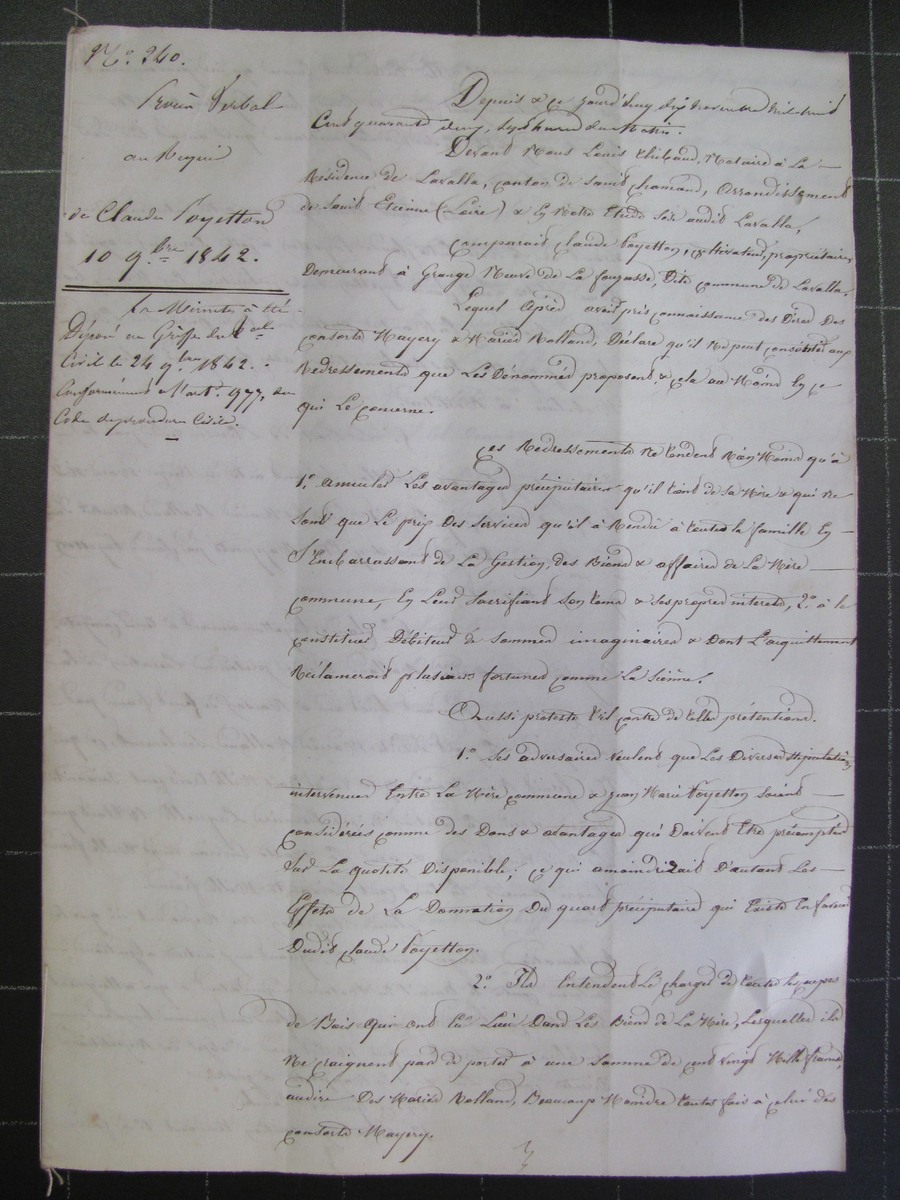 N.o 240.
Procès Verbal
au Requis
de Claude Poyetton
10 9.bre 1842.
La Minute à été
Déposé au Greffe du
Civil le 24 9.bre 1842.
Conformément à l'art. 977, du
Code de procédure Civile.
Depuis & ce jourd'huy dix novembre mil huit
Cent quarante deux, sept heures du Matin.
Devant Nous Louis Thibaud, Notaire à La
Résidence de Lavalla, canton de Saint Chamand, Arrondissement
de Saint Etienne (Loire) & En Notre Etude sise audit Lavalla,
Comparait Claude Poyetton, cultivateur, propriétaire,
Demeurant à Grange Neuve de La fougasse, Dite commune de Lavalla.
Lequel Après avoir pris connaissance des Dires Des
consorts Mayery & Mariés Rolland, Déclare qu'il Ne peut consentir aux
Redressements que Les Dénommés proposent & cela au Moins En ce
qui Le Concerne.
Ces Redressements Ne tendent Rien Moins qu'à
1.o annuler Les avantages préciputaires qu'il tient de sa Mère & qui Ne
Sont que Le prix Des Services qu'il à Rendu à toute la famille En
S'Embarrassant de La Gestion, Des Biens & affaires de La Mère
commune, En Leur Sacrifiant Son tems & Ses propres interets, 2.o à le
constituer Débiteur de Sommes imaginaires & Dont L'acquittement
Réclamerait plusieurs fortunes comme La Sienne.
Aussi proteste t'il contre de telles prétentions.
1.o Ses adversaires veulent que Les Diverses Stipulations
intervenues Entre La Mère Commune & Jean Marie Poyetton Soient
considérées comme des Dons & avantages qui Doivent Etre précomptés
Sur La quotité Disponible; ce qui amoindrirait D'autant Les
Effets de La Donnation Du quart préciputaire qui Existe En faveur
Dudit Claude Poyetton.
2.o Ils Entendent Le charger de toutes les coupes
de Bois qui ont Eu Lieu Dans Les Biens de La Mère, Lesquelles ils
Ne craignent pas de porter à une Somme de cent vingt Mille francs,
au dire Des Mariés Rolland, Beaucoup Moindre toutes fois à celui des
consorts Mayery.